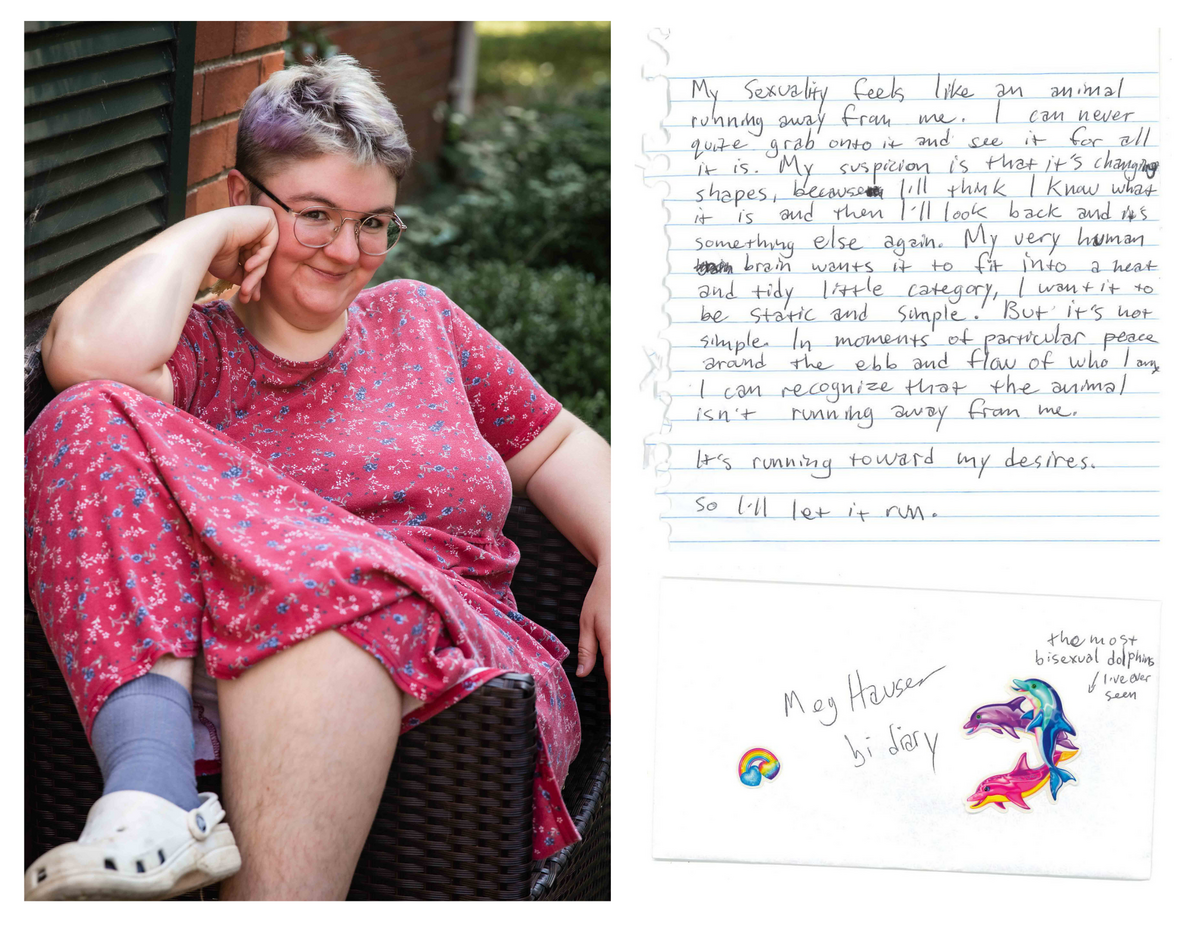 My sexuality feels like an animal
running away from me. I can never
quite grab onto it and see it for all
it is. My suspicion is that it's changing
shapes, because I'll think I know what
it is and then I'll look back and it's
something else again. My very human
brain wants it to fit into a neat
and tidy little category, I want it to
be static and simple. But it's not
simple. In moments of particular peace
around the ebb and flow of who I am,
I can recognize that the animal
isn't running away from me.
It's running toward my desires.
So I'll let it run.
the most
bisexual dolphins
I've ever
seen
Meg Hauser
bi diary